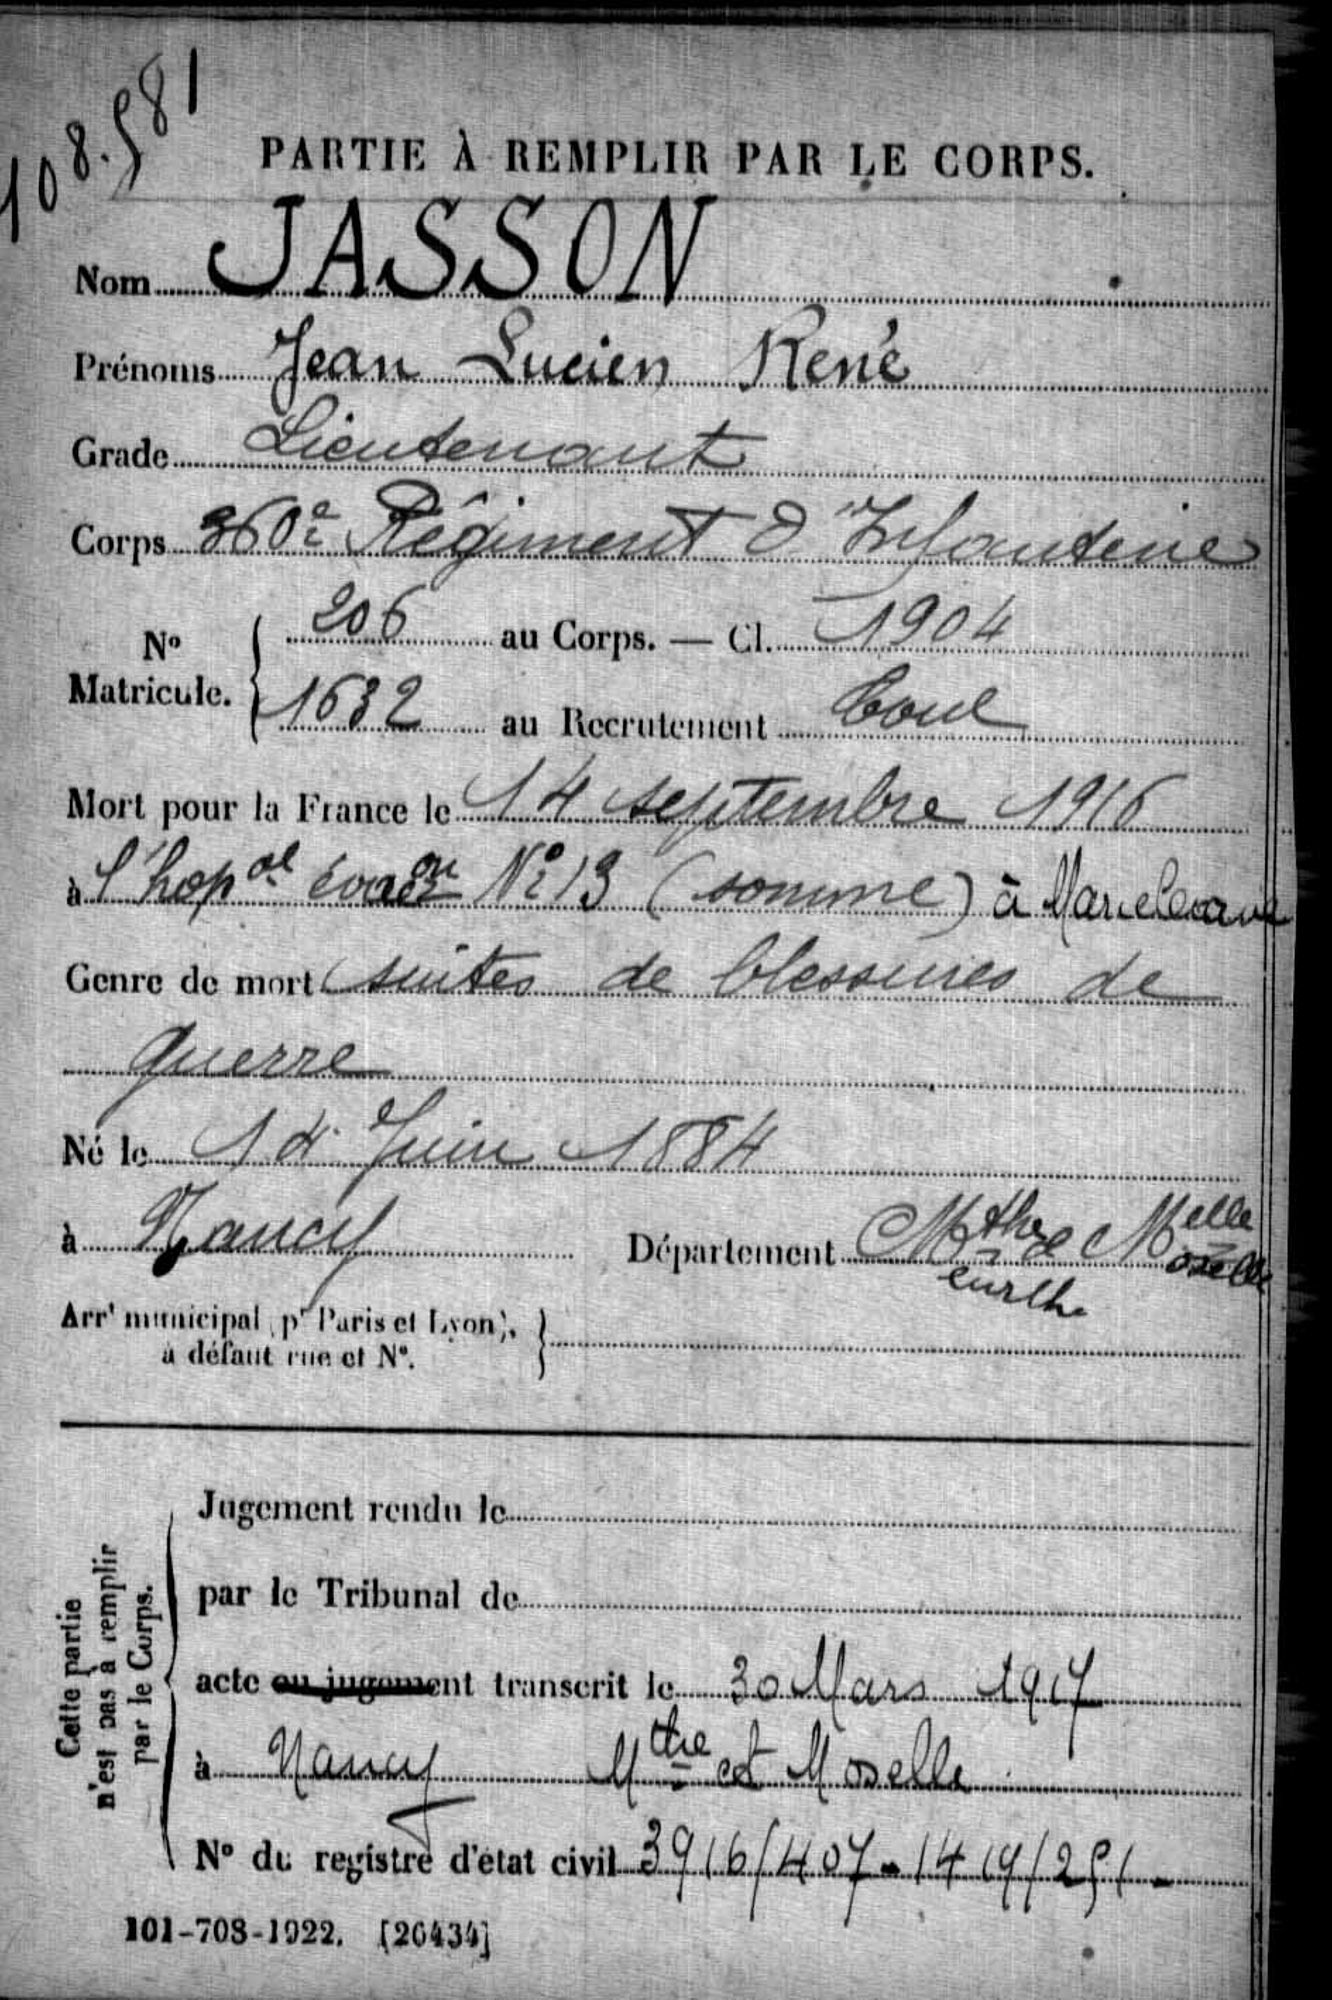 108.581
PARTIE À REMPLIR PAR LE CORPS.
Nom JASSON
Prénoms Jean Lucien René
Grade Lieutenant
Corps 360e Régiment d'Infanterie
No Matricule. { 206 au Corps. — Cl. 1904
1632 au Recrutement Toul
Mort pour la France le 14 septembre 1916
à l'hopal No 13 (somme) à Marcelcave
Genre de mort suites de blessures de
guerre
Né le 14 Juin 1884
à Nancy Département Mthe & Melle
eurthe oselle
Arrt municipal (pr Paris et Lyon), }
à défaut rue et No.
Cette partie
n'est pas à remplir
par le Corps.
Jugement rendu le
par le Tribunal de
acte ou jugement transcrit le 30 Mars 1917
à Nancy Mthe et Moselle
No du registre d'état civil 3916/407-1419/251-
101-708-1922. [26434]